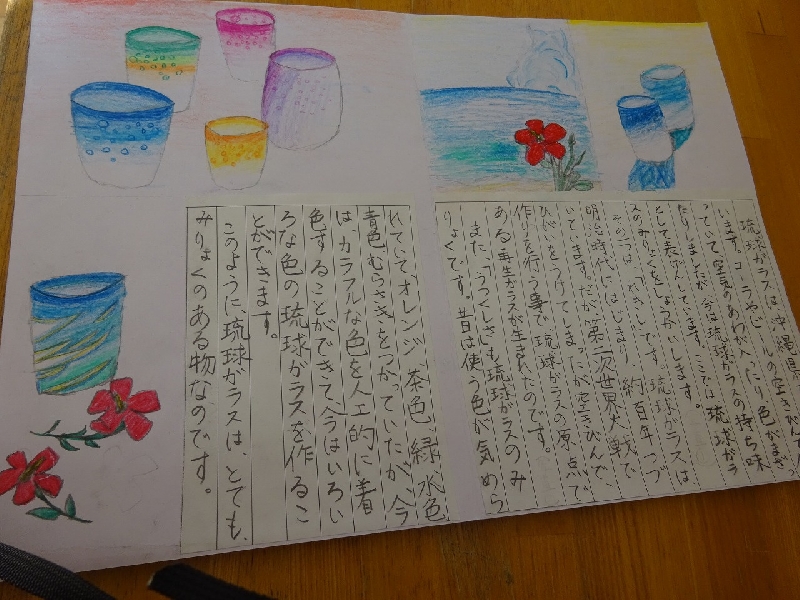 琉球ガラスは、沖縄県
います。コーラやビールの空きびん
っていて空気のあわが入ったり色がまざ
たりしましたが、今は琉球ガラスの持ち味
として表が
スのみりょくをしょうかいします。
その一つは「れきし」です。琉球ガラスは
明治時代にはじまり、約百年つづ
いています。だが、第二次世界大戦で
ひがいをうけてしまったが空きびんで、
作りを行う事で琉球ガラスの原点で
ある再生ガラスが生まれたのです。
また、「うつくしさ」も琉球ガラスのみ
りょくです。昔は使う色が気めら
れていて、オレンジ、茶色、緑、水色
青色、むらさきをつかっていたが、今
は、カラフルな色を人工的に着
色することができて、今はいろい
ろな色の琉球ガラスを作るこ
とができます。
このように、琉球ガラスは、とても、
みりょくのある物なのです。